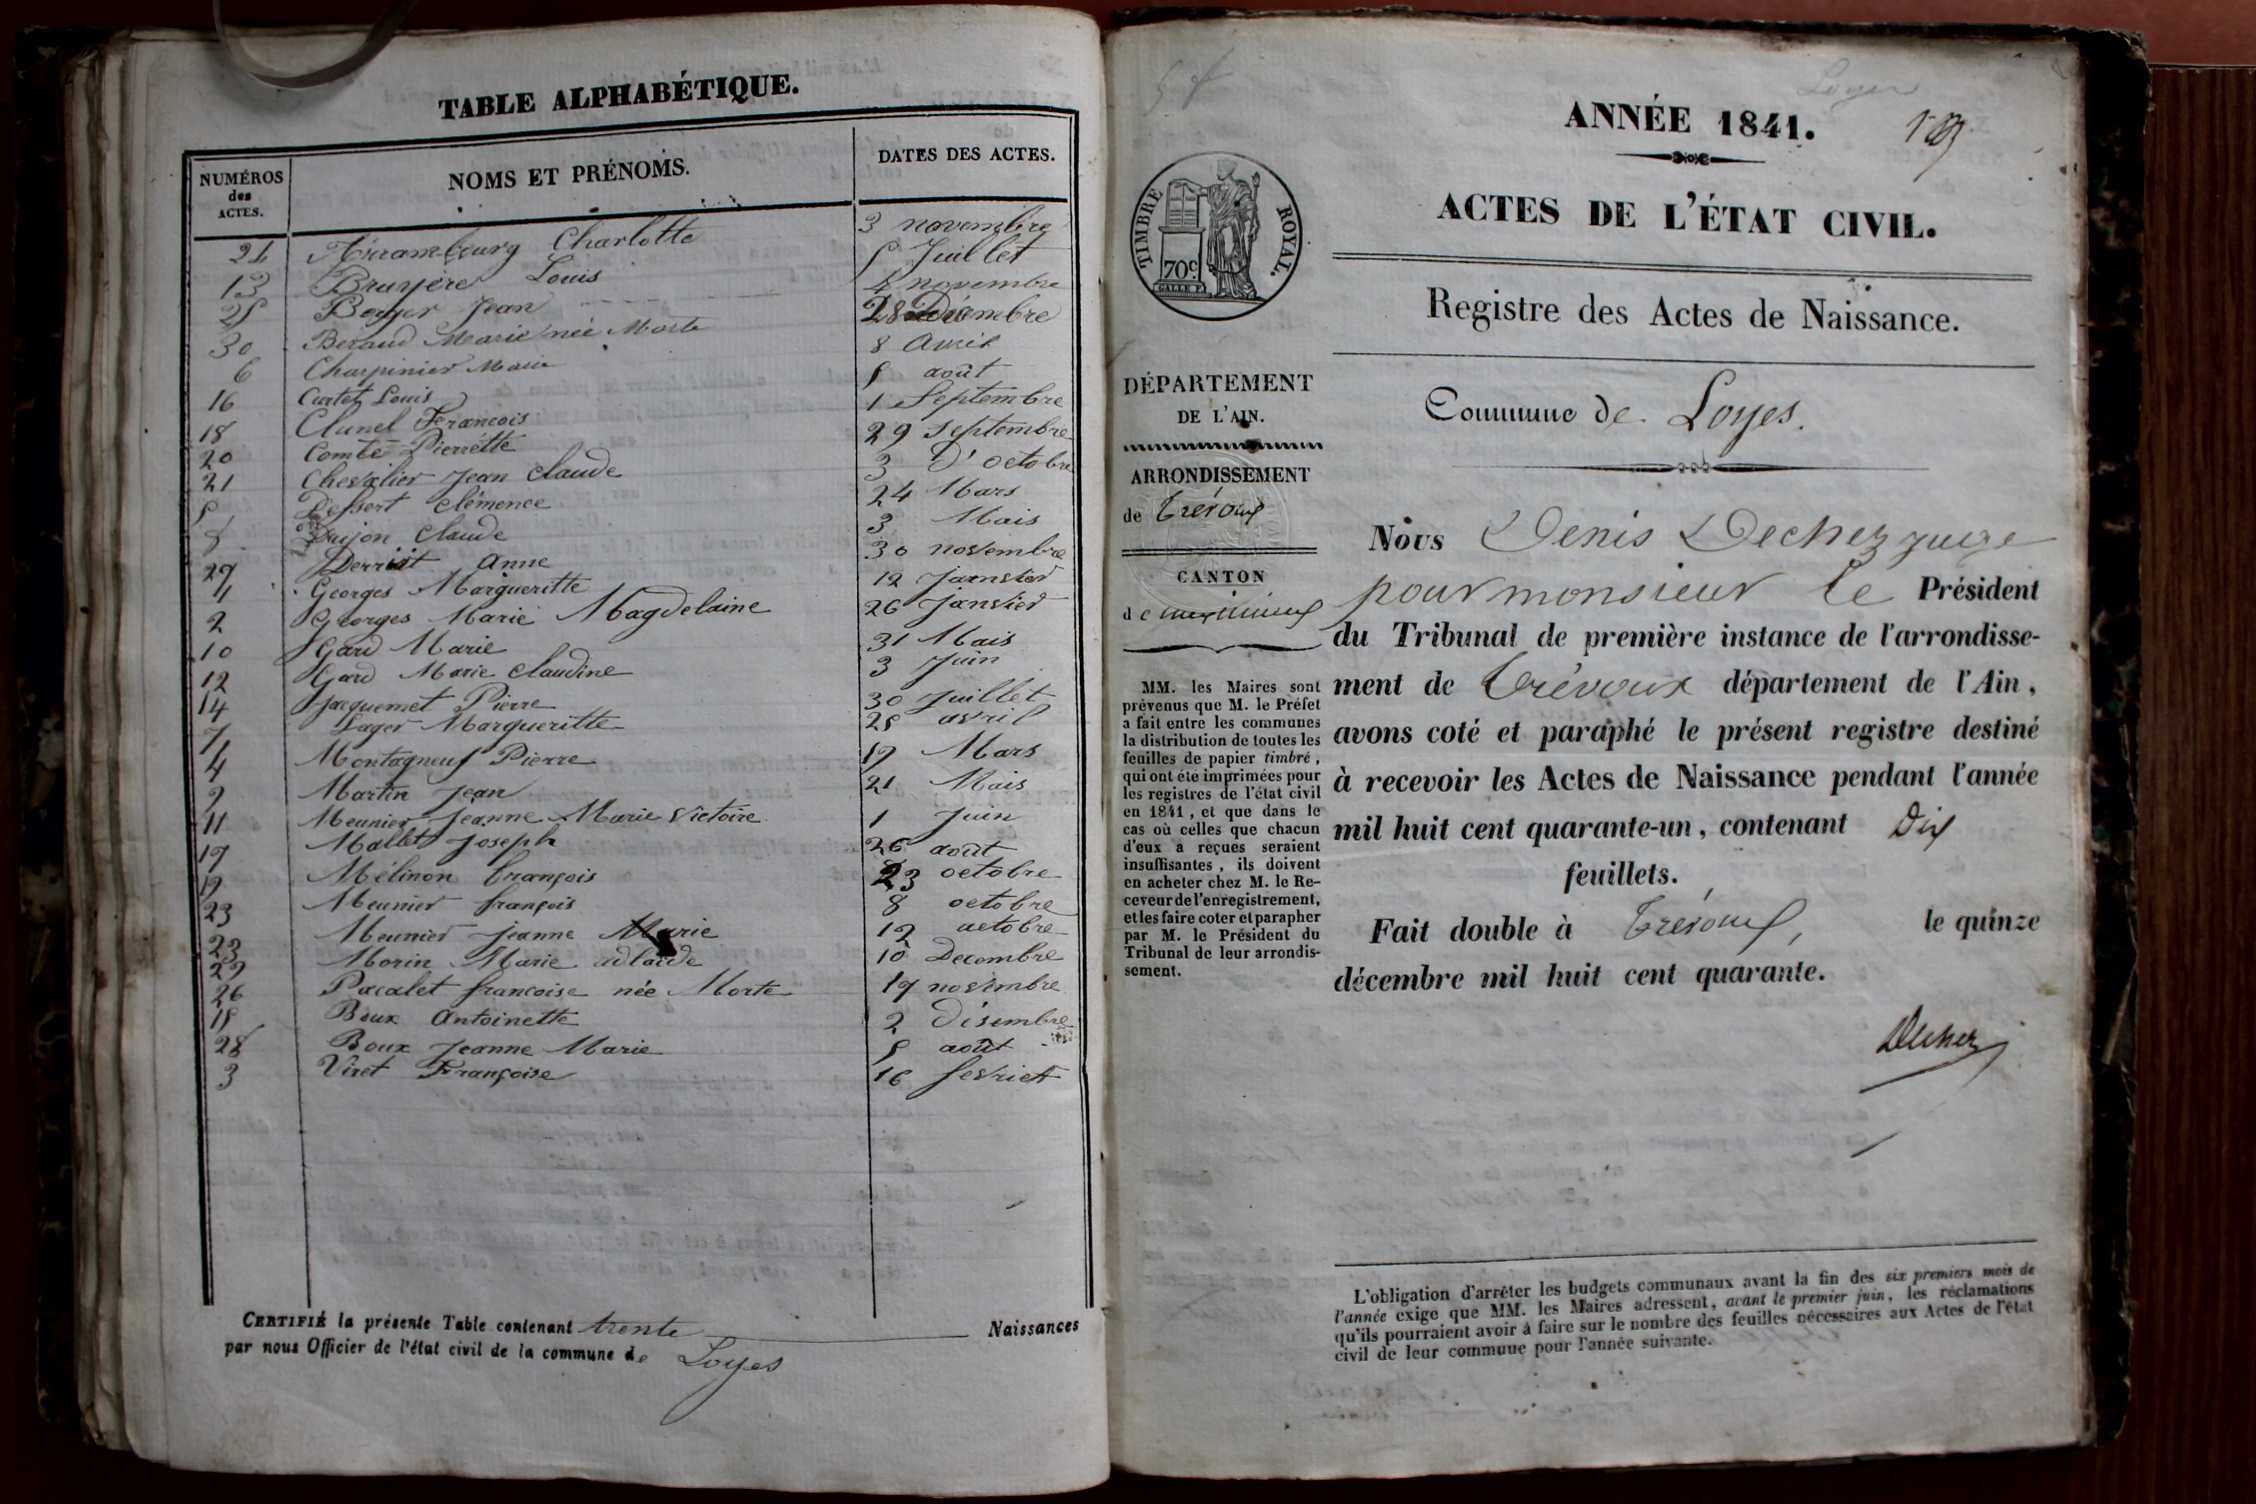 TABLE ALPHABÉTIQUE.
NUMÉROS des ACTES. NOMS ET PRÉNOMS. DATES DES ACTES.
Charlotte 3 novembre
13 Bruyère Louis 5 Juillet
25 Boyer Jean 4 novembre
30 Béraud Marie née Morte 28 Décembre
6 Charpinier Marie 8 avril
16 Curtet Louis 5 août
18 Clunel Francois 1 Septembre
20 Comte Pierrette 29 Septembre
21 Chevalier Jean Claude 3 d'octobre
5 Dessort Clémence 24 Mars
8 Dujon Claude 3 Mais
27 Derriot Anne 30 novembre
1 Georges Margueritte 12 Janvier
2 Georges Marie Magdelaine 26 Janvier
10 Gard Marie 31 Mais
12 Gard Marie Claudine 3 Juin
14 Jacquemet Pierre 30 Juillet
7 Lager Margueritte 25 avril
4 Montagneux Pierre 19 Mars
9 Martin Jean 21 Mais
11 Meunier Jeanne Marie Victoire 1 Juin
17 Mallet Joseph 26 août
19 Mélinon François 23 octobre
23 Meunier françois 8 octobre
23 Meunier Jeanne Marie 12 octobre
29 Morin Marie adlaide 10 Decembre
26 Pacalet francoise née Morte 19 novembre
15 Boux Antoinette 2 Disembre
28 Boux Jeanne Marie 5 août
3 Viret Françoise 16 fevrier
CERTIFIÉ la présente Table contenant trente Naissances
par nous Officier de l'état civil de la commune de Loyes
Loyes
ANNÉE 1841.
ACTES DE L'ÉTAT CIVIL.
TIMBRE ROYAL.
70c
Registre des Actes de Naissance.
Commune de Loyes.
DÉPARTEMENT
DE L'AIN.
ARRONDISSEMENT
de Trévoux
CANTON
de meximieux
MM. les Maires sont
prévenus que M. le Préfet
a fait entre les communes
la distribution de toutes les
feuilles de papier timbré,
qui ont été imprimées pour
les registres de l'état civil
en 1841, et que dans le
cas où celles que chacun
d'eux a reçues seraient
insuffisantes, ils doivent
en acheter chez M. le Re-
ceveur de l'enregistrement,
et les faire coter et parapher
par M. le Président du
Tribunal de leur arrondis-
sement.
Nous Denis Dechez juge
pour monsieur le Président
du Tribunal de première instance de l'arrondisse-
ment de Trévoux département de l'Ain,
avons coté et paraphé le présent registre destiné
à recevoir les Actes de Naissance pendant l'année
mil huit cent quarante-un, contenant Dix
feuillets.
Fait double à Trévoux, le quinze
décembre mil huit cent quarante.
Dechez
L'obligation d'arrêter les budgets communaux avant la fin des six premiers mois de
l'année exige que MM. les Maires adressent, avant le premier juin, les réclamations
qu'ils pourraient avoir à faire sur le nombre des feuilles nécessaires aux Actes de l'état
civil de leur commune pour l'année suivante.